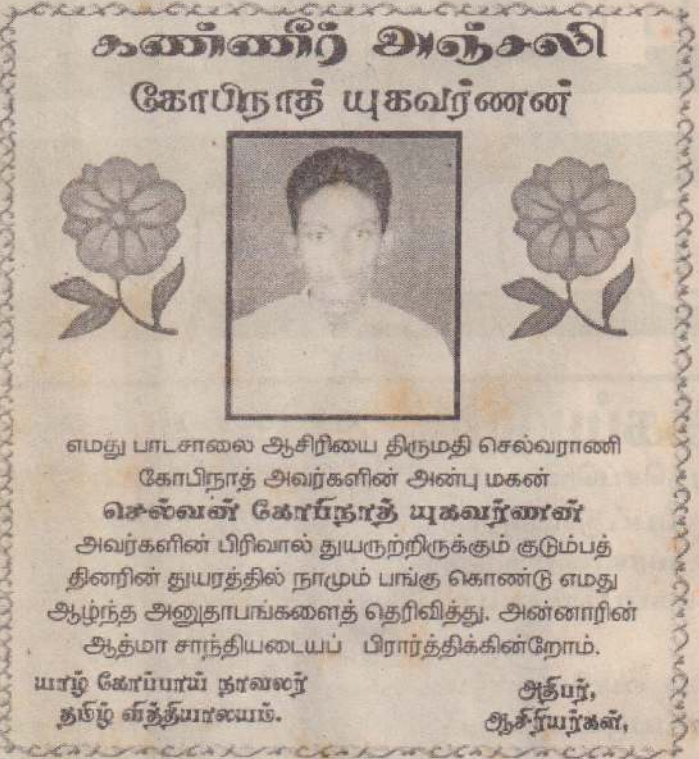 கண்ணீர் அஞ்சலி
கோபிநாத் யுகவர்ணன்
எமது பாடசாலை ஆசிரியை திருமதி செல்வராணி
கோபிநாத் அவர்களின் அன்பு மகன்
செல்வன் கோபிநாத் யுகவர்ணன்
அவர்களின் பிரிவால் துயருற்றிருக்கும் குடும்பத்
தினரின் துயரத்தில் நாமும் பங்கு கொண்டு எமது
ஆழ்ந்த அனுதாபங்களைத் தெரிவித்து. அன்னாரின்
ஆத்மா சாந்தியடையப் பிரார்த்திக்கின்றோம்.
யாழ் கோப்பாய் நாவலர்
தமிழ் வித்தியாலயம்.
அதிபர்,
ஆசிரியர்கள்,